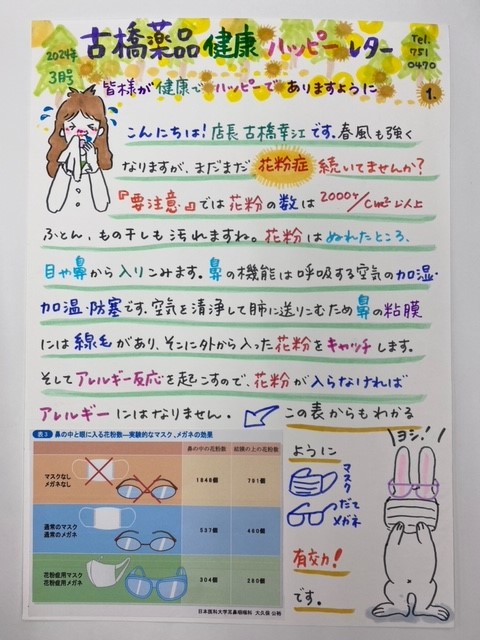 2024年
3月号
古橋薬品健康ハッピーレター
Tel.
751
0470
皆様が健康でハッピーでありますように
1.
こんにちは!店長古橋幸江です。春風も強く
なりますが、まだまだ花粉症続いてませんか?
『要注意』では花粉の数は2000ヶ/cm²以上
ふとん、もの干しも汚れますね。花粉はぬれたところ、
目や鼻から入りこみます。鼻の機能は呼吸する空気の加湿・
加温・防塞です。空気を清浄して肺に送りこむため鼻の粘膜
には線毛があり、そこに外から入った花粉をキャッチします。
そしてアレルギー反応を起こすので、花粉が入らなければ
アレルギーにはなりません。この表からもわかる
表3 鼻の中と眼に入る花粉数―実験的なマスク、メガネの効果
鼻の中の花粉数 結膜の上の花粉数
マスクなし
メガネなし
1848個 791個
通常のマスク
通常のメガネ
537個 460個
花粉症用マスク
花粉症用メガネ
304個 280個
日本医科大学耳鼻咽喉科 大久保 公裕
ように
マスク
だて
メガネ
有効力!
です。
ヨシ!